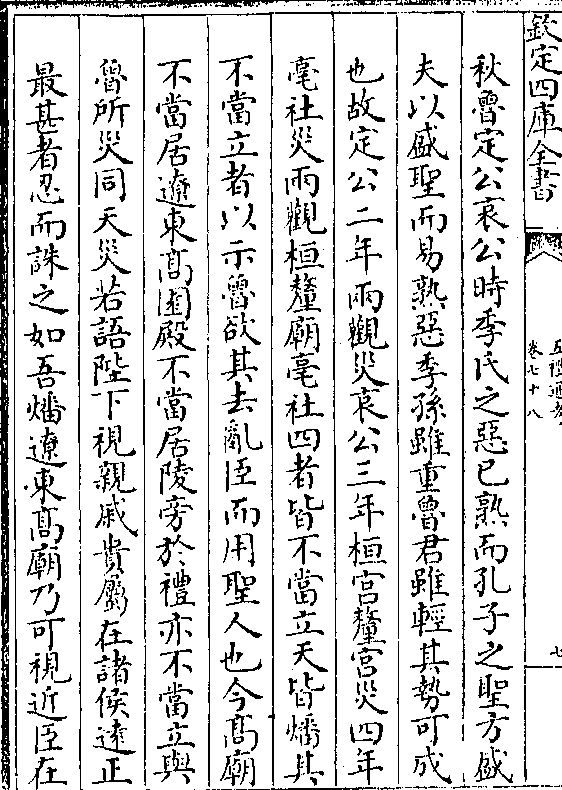 欽定四庫全書
五禮通考
卷七十八
七
秋魯定公哀公時季氏之惡已熟而孔子之聖方盛
夫以盛聖而易熟惡季孫雖重魯君雖輕其勢可成
也故定公二年兩觀災哀公三年桓宫釐宫災四年
亳社災兩觀桓釐廟亳社四者皆不當立天皆燔其
不當立者以示魯欲其去亂臣而用聖人也今髙廟
不當居遼東髙園殿不當居陵旁於禮亦不當立與
魯所災同天災若語陛下視親戚貴屬在諸侯逺正
最甚者忍而誅之如吾燔遼東髙廟乃可視近臣在